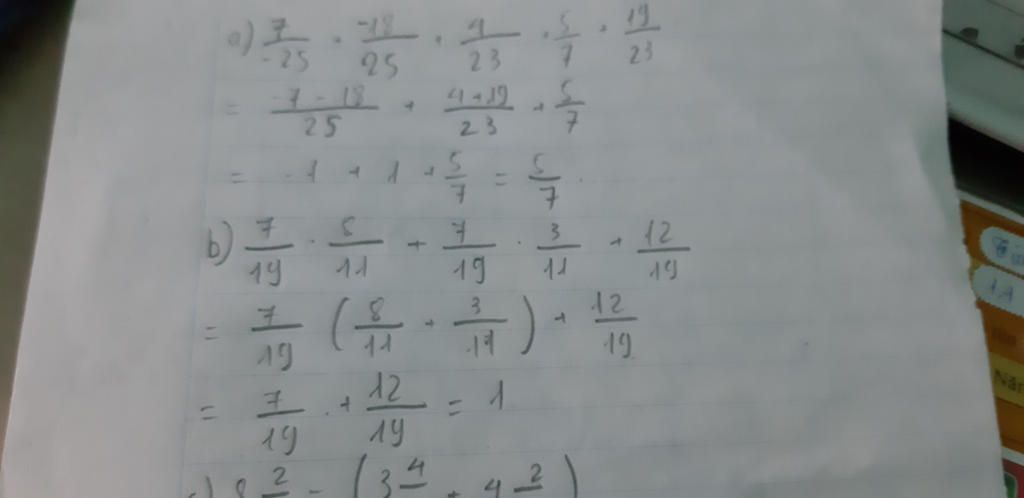 a) 7/-25 + -18/25 + 4/23 + 5/7 + 19/23
= -7-18/25 + 4+19/23 + 5/7
= -1 + 1 + 5/7 = 5/7
b) 7/19 · 8/11 + 7/19 · 3/11 + 12/19
= 7/19 (8/11 + 3/11) + 12/19
= 7/19 + 12/19 = 1
11
Năm